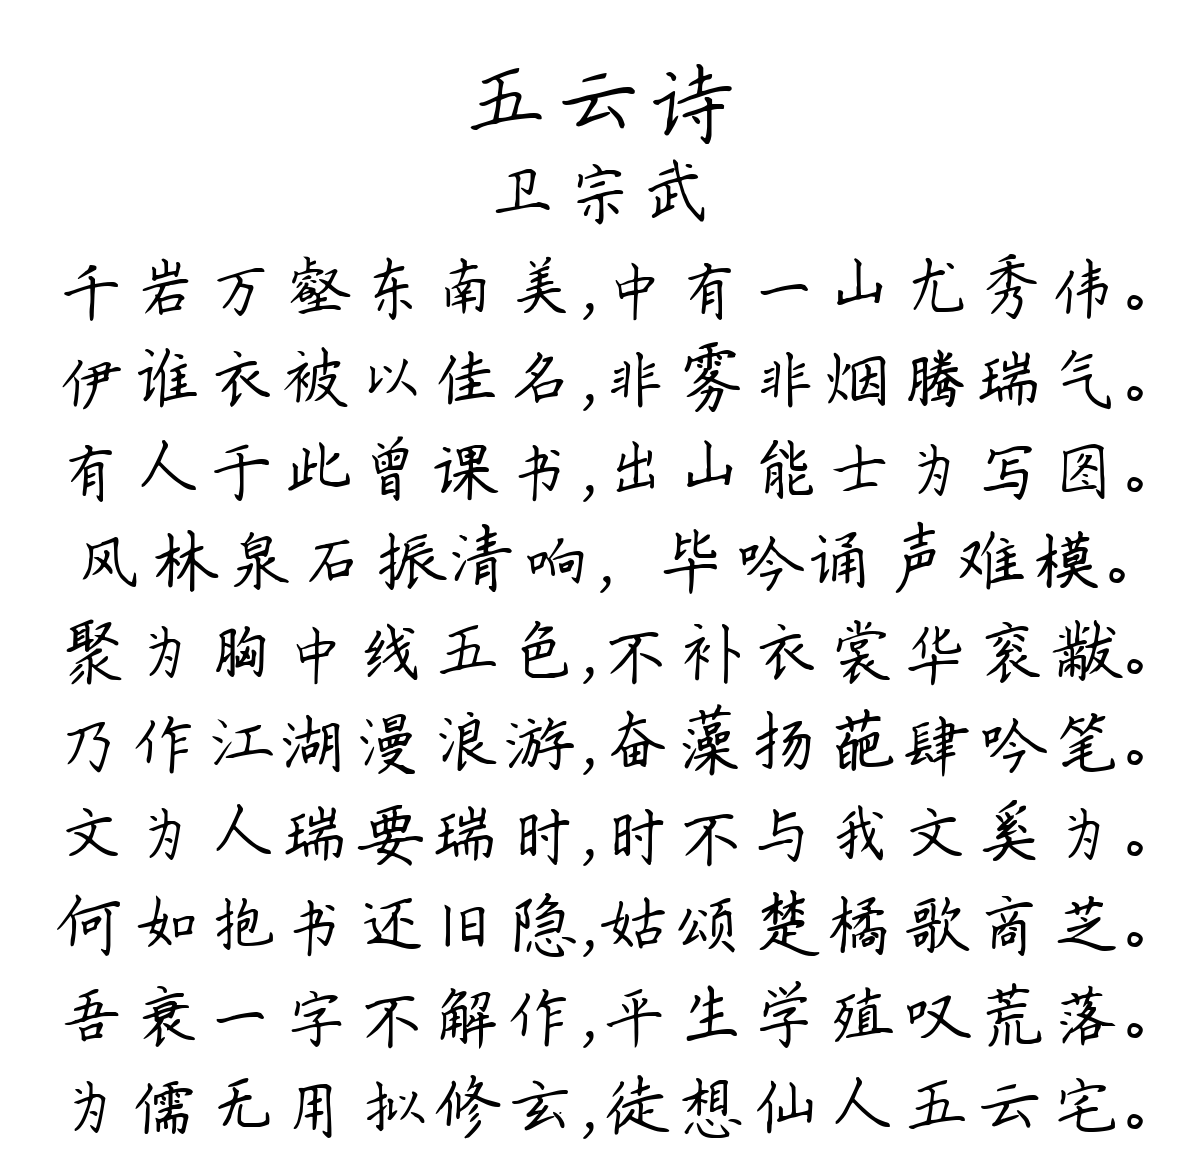 五云诗
卫宗武
千岩万壑东南美,中有一山尤秀伟。
伊谁衣被以佳名,非雾非烟腾瑞气。
有人于此曾课书,出山能士为写图。
风林泉石振清响，毕吟诵声难模。
聚为胸中线五色,不补衣裳华衮黻。
乃作江湖漫浪游,奋藻扬葩肆吟笔。
文为人瑞要瑞时,时不与我文奚为。
何如抱书还旧隐,姑颂楚橘歌商芝。
吾衰一字不解作,平生学殖叹荒落。
为儒无用拟修玄,徒想仙人五云宅。